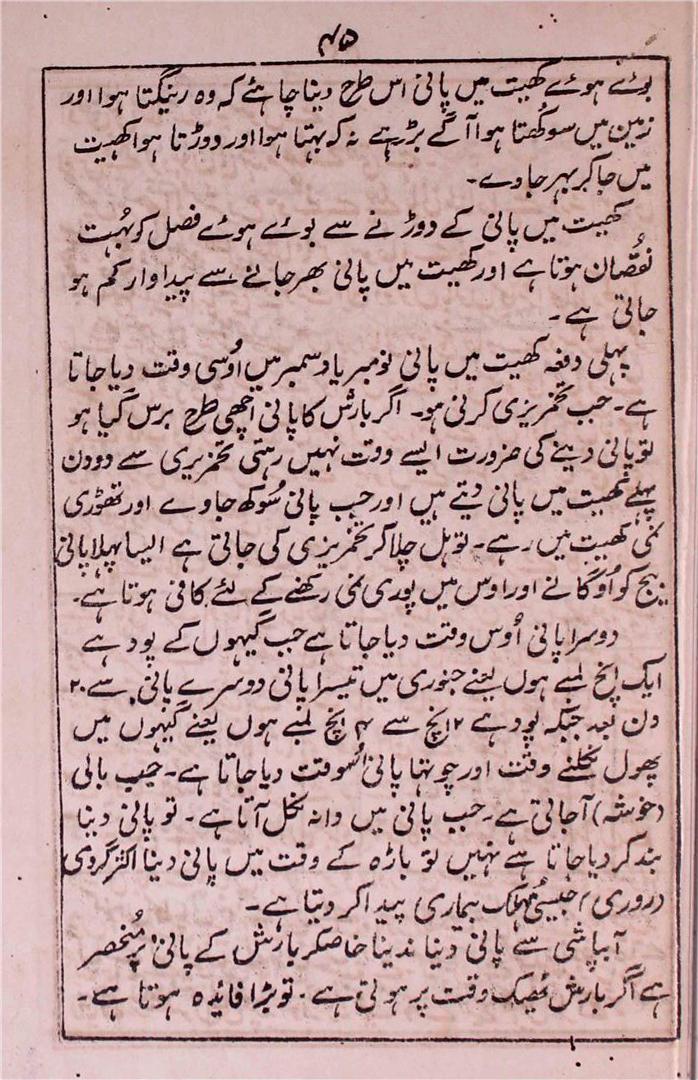 ۴۵
بوئے ہوئے کھیت میں پانی اس طرح دینا چاہئے کہ وہ رینگتا ہوا اور
زمین میں سوکھتا ہوا آگے بڑہے نہ کہ بہتا ہوا اور دوڑتا ہوا کھیت
میں جا کر بہر جاوے۔
کھیت میں پانی کے دوڑنے سے بوئے ہوئے فصل کو بُہت
نقُصان ہوتا ہے اور کھیت میں پانی بھر جانے سے پیداوار کم ہو
جاتی ہے۔
پہلی دفعہ کھیت میں پانی نومبر یا دسمبر میں اُوسی وقت دیا جاتا
ہے۔ جب تخمریزی کرنی ہو۔ اگر بارش کا پانی اچھی طرح برس گیا ہو
تو پانی دینے کی ضرورت ایسے ووت نہیں رہتی تخمریری سے دو دن
پہلے کھیت میں پانی دیتے ہیں اور جب پانی سُوکھ جاوے اور تھوڑی
نمی کھیت میں رہے۔ تو ہل چلا کر تخمریزی کی جاتی ہے ایسا پہلا پانی
بیج کو اُوگانے اور اوس میں پوری نمی رکھنے کے لئے کافی ہوتا ہے۔
دوسرا پانی اُوس وقت دیا جاتا ہے جب گیہوں کے پودہے
ایک اِنچ لمبے ہوں یعنے جنوری میں تیسرا پانی دوسرے پانی سے ۲۰
دن بعد جبکہ پودہے ۲ اِنچ سے ۴ اِنچ لمبے ہوں یعنے گیہوں میں
پھول نکلنے وقت اور چوتہا پانی اُسوقت دیا جاتا ہے۔ جب بالی
(خوشہ) آجاتی ہے۔ جب پانی میں دانہ نکل آتا ہے۔ تو پانی دینا
بند کر دیا جاتا ہے نہیں تو باڑہ کے وقت میں پانی دینا اکثر گروی
(روری) جیسیُ مہلک بیماری پیدا کر دیتا ہے۔
آبپاشی سے پانی دینا ندینا خاصکر بارش کے پانی پر مُنحصر
ہے اگر بارش ٹھیک وقت پر ہوتی ہے۔ تو بڑا فائیدہ ہوتا ہے۔